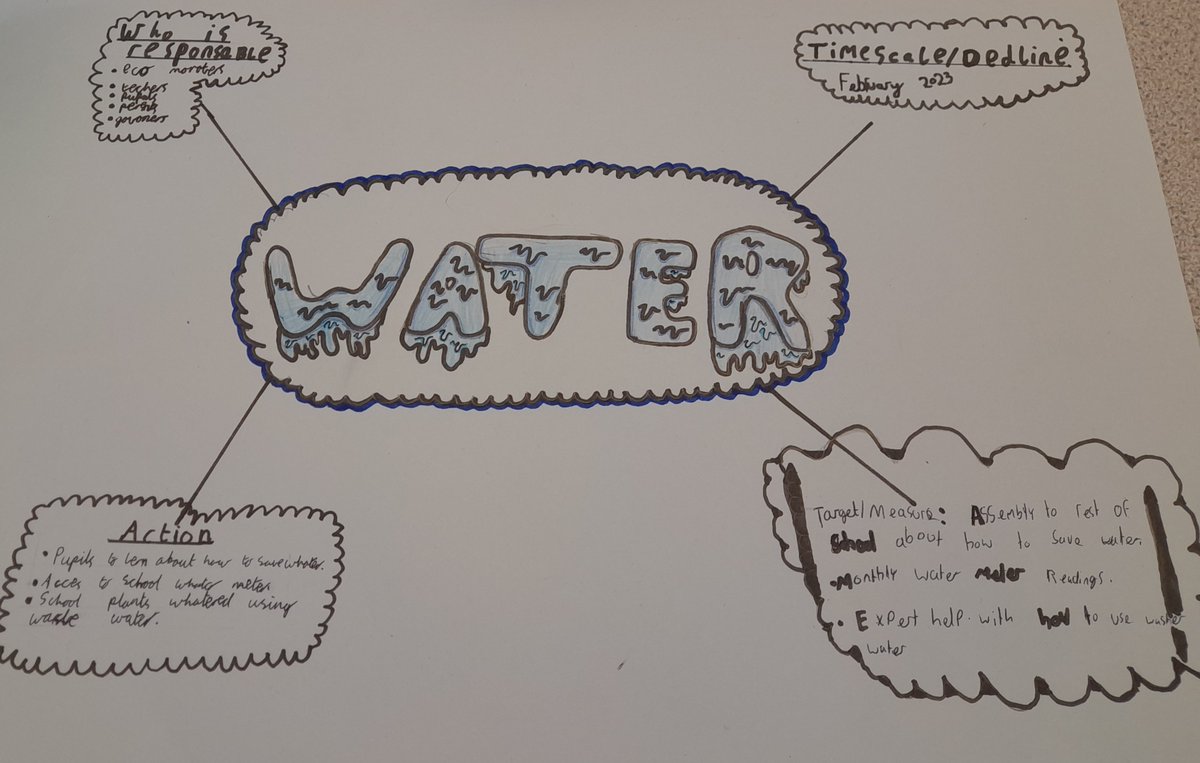 Who is
responsable
• eco monoters
• techers
• pupils
• perents
• govoners
Timescale/Dedline
February 2023
WATER
Action
• Pupils to lern about how to save whater.
• Acces to School whater meter.
• School plants whatered using
waste water.
Target/Measure: Assembly to rest of
School about how to save water.
• Monthly water Meter Readings.
• Expert help with how to use waste
water